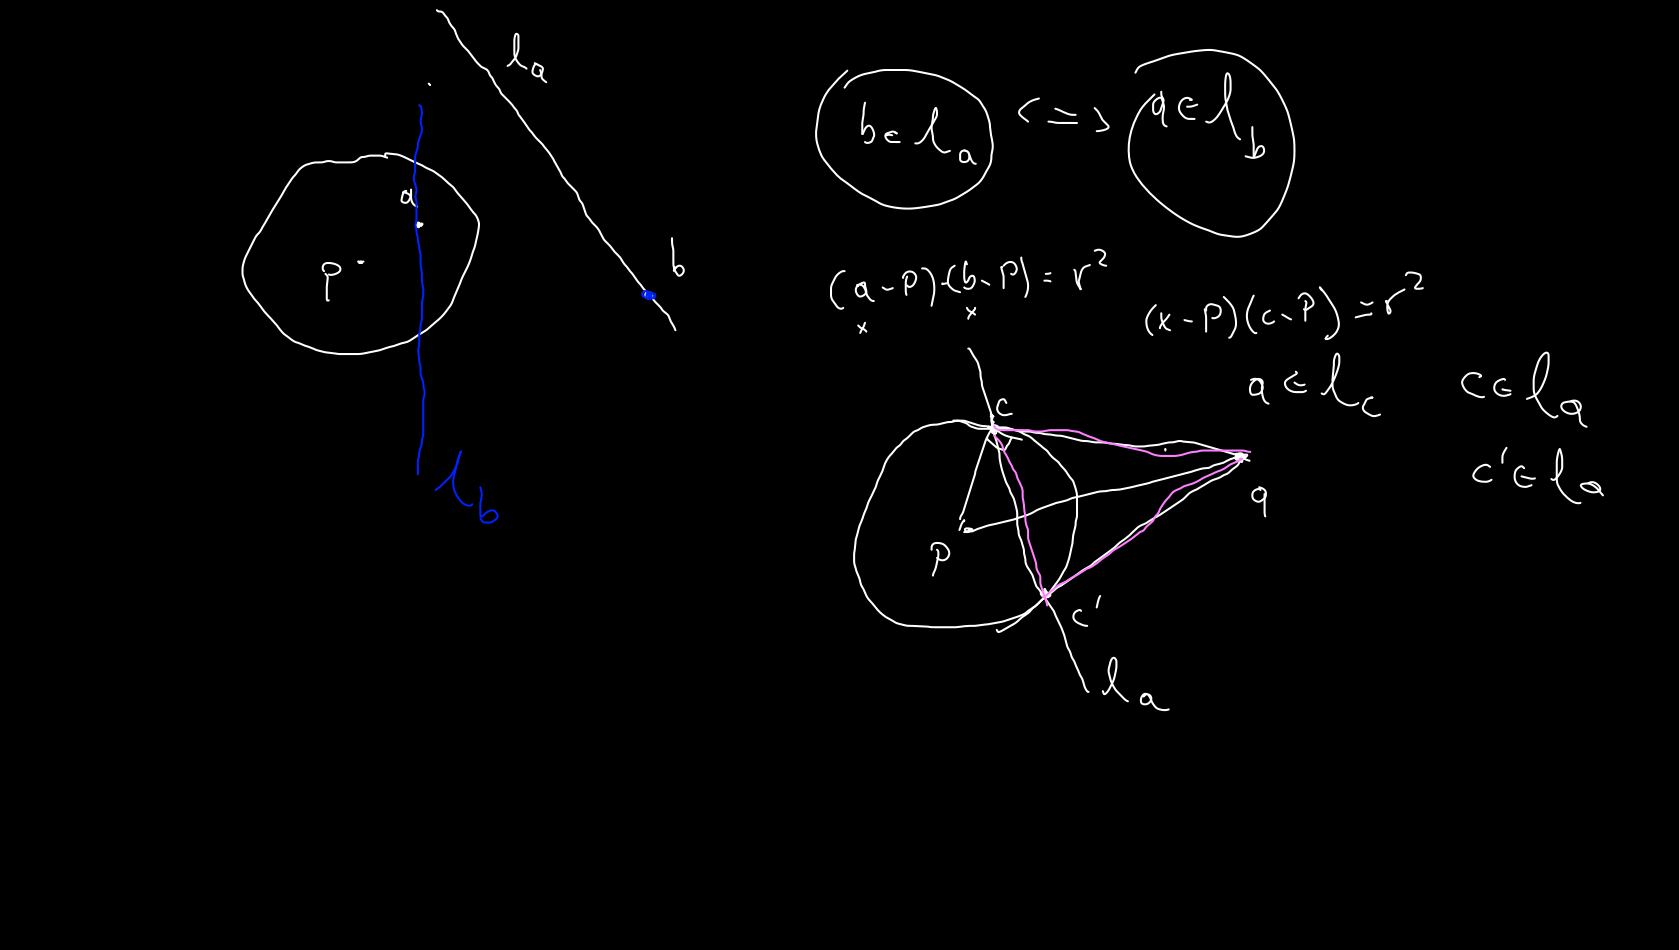 l_a
a
p
b
l_b
b ∈ l_a <=> a ∈ l_b
(a - p)·(b - p) = r²
x x
(x - p)(c - p) = r²
a ∈ l_c c ∈ l_a
c' ∈ l_a
c
a
p
c'
l_a